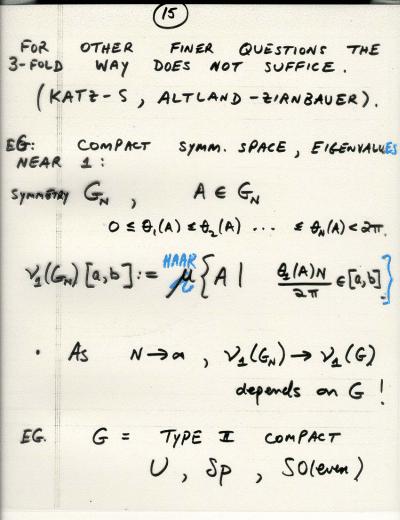 15
FOR OTHER FINER QUESTIONS THE
3-FOLD WAY DOES NOT SUFFICE.
(KATZ-S, ALTLAND-ZIRNBAUER).
EG: COMPACT SYMM. SPACE, EIGENVALUES
NEAR 1:
SYMMETRY G_N, A ∈ G_N
0 ≤ θ₁(A) ≤ θ₂(A) ... ≤ θ_N(A) < 2π.
HAAR
ν₁(G_N)[a,b] := μ{A | θ₁(A)N/2π ∈ [a,b]}
• As N → ∞, ν₁(G_N) → ν₁(G)
depends on G!
EG. G = TYPE II COMPACT
U, Sp, SO(even)